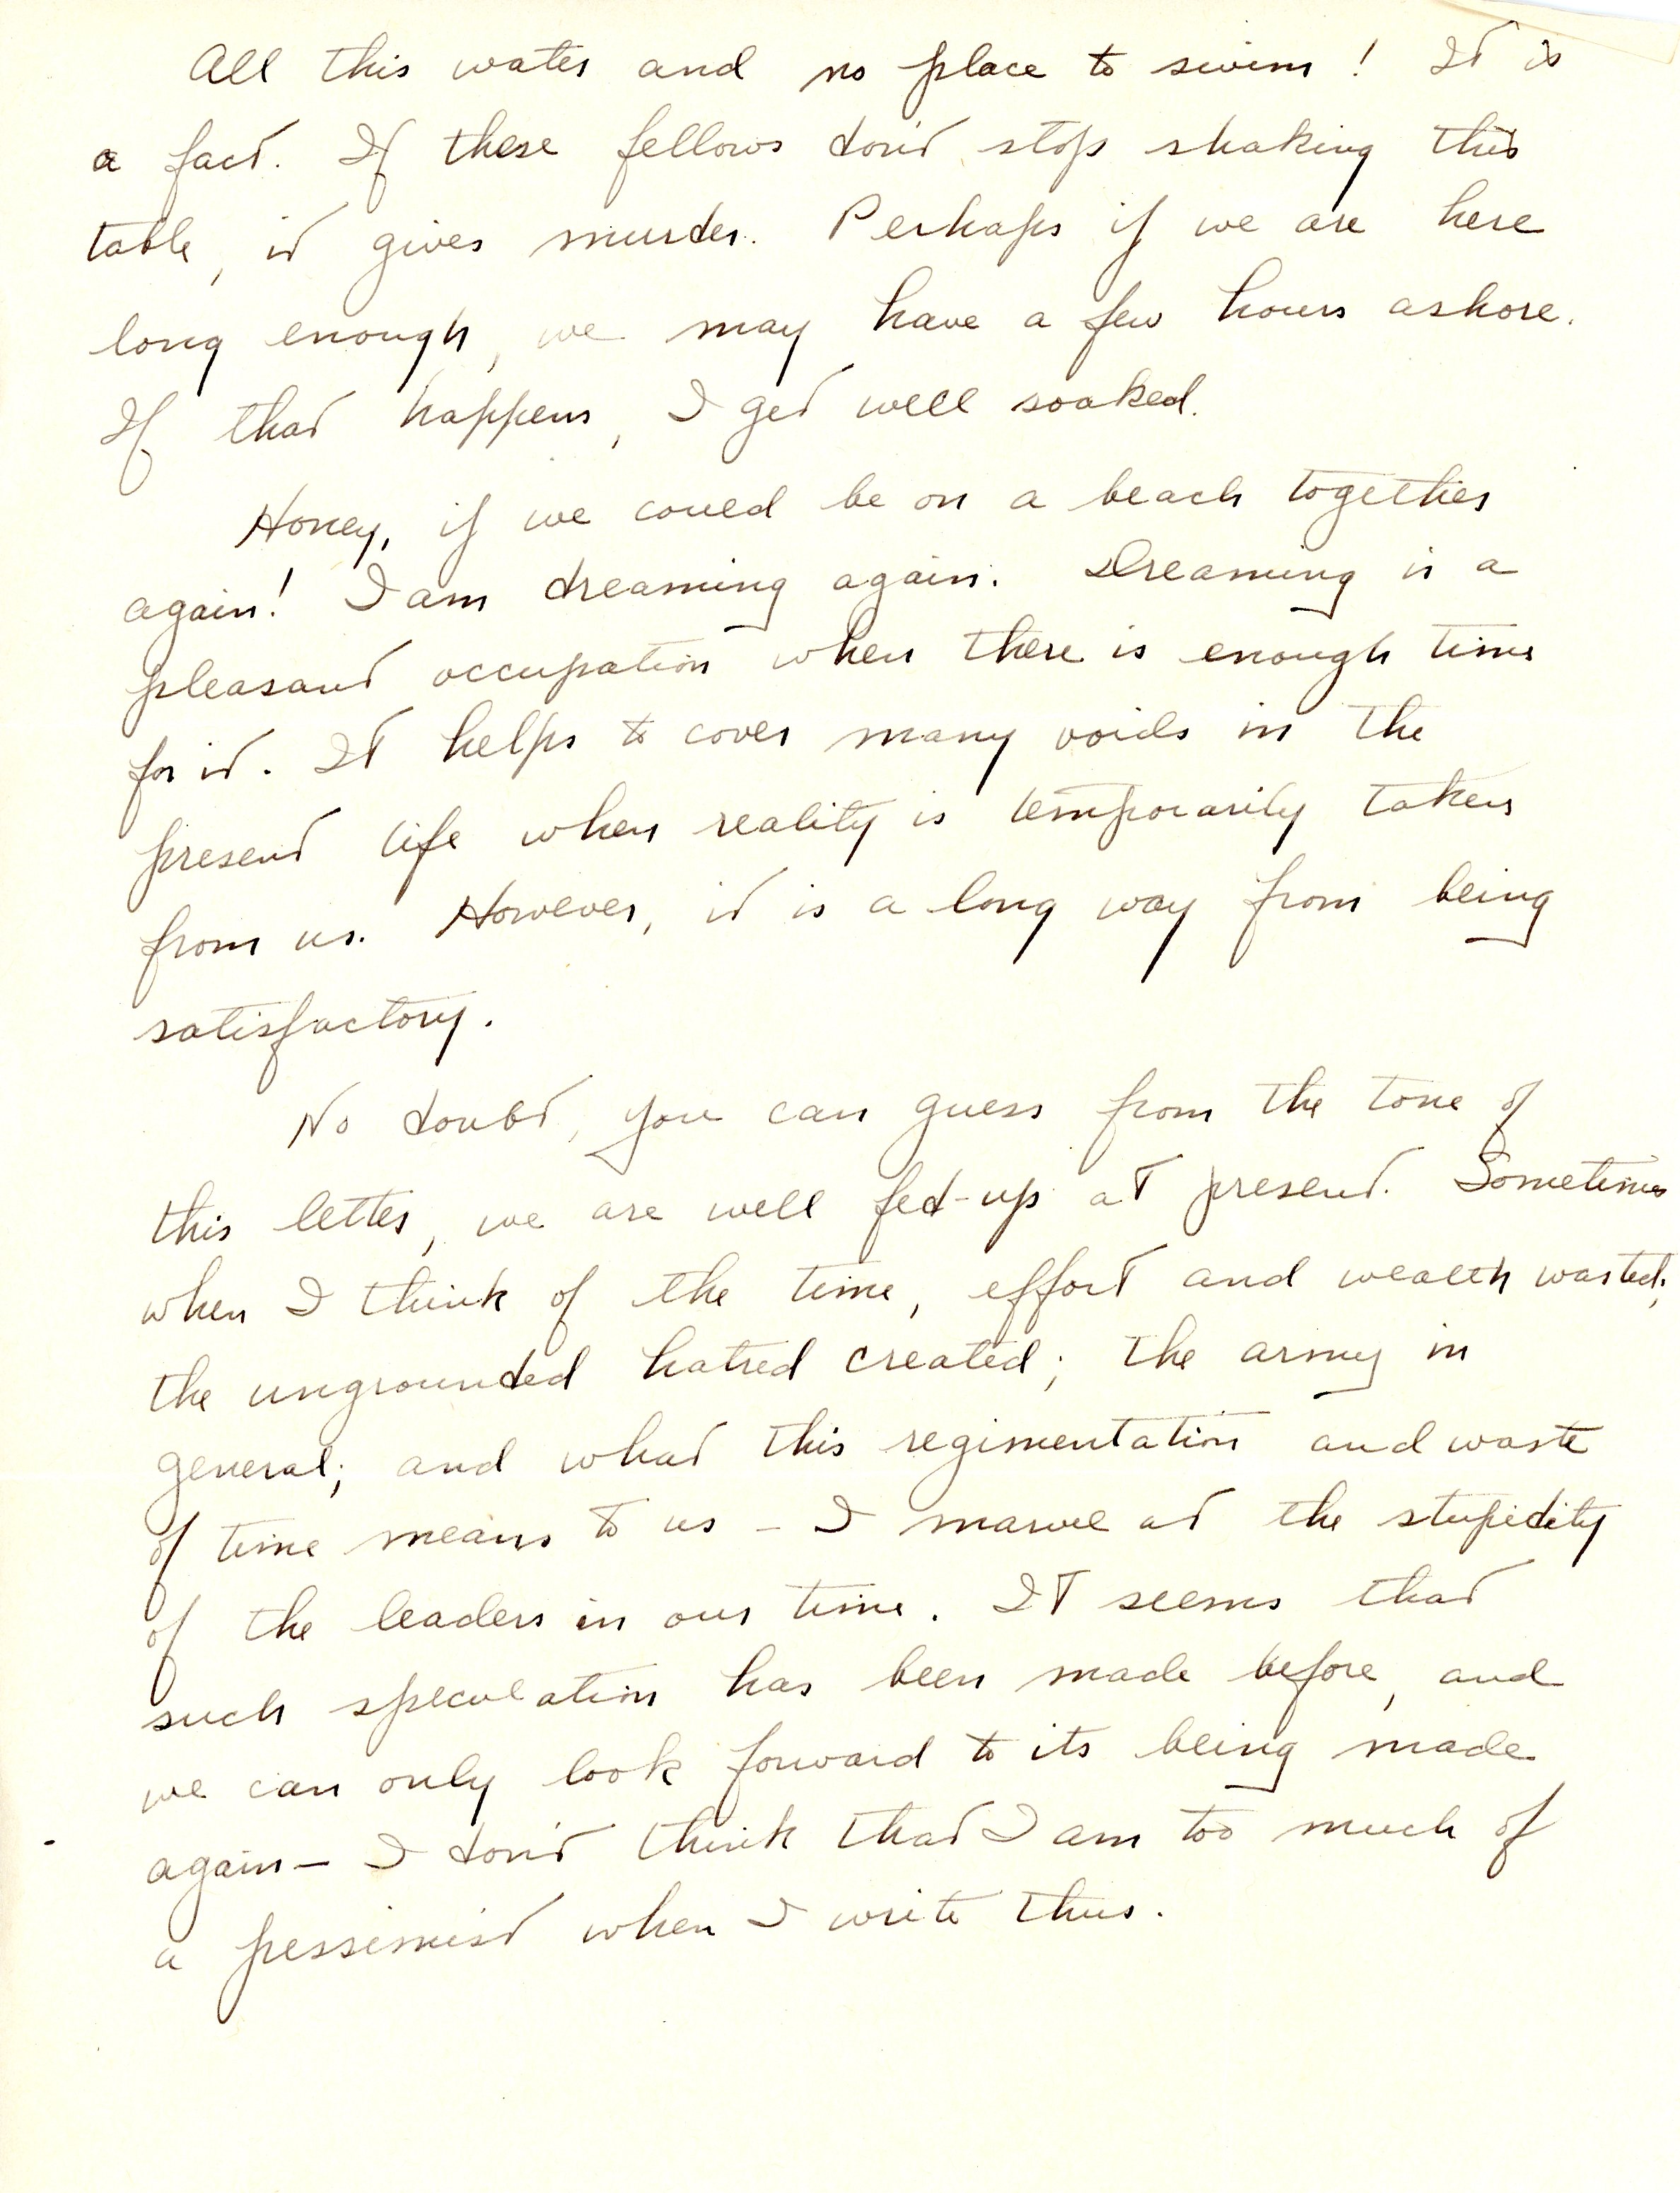 All this water and no place to swim! It is
a fact. If these fellows don't stop shaking this
table, it gives murder. Perhaps if we are here
long enough, we may have a few hours ashore.
If that happens, I get well soaked.
Honey, if we could be on a beach together
again! I am dreaming again. Dreaming is a
pleasant occupation when there is enough time
for it. It helps to cover many voids in the
present life when reality is temporarily taken
from us. However, it is a long way from being
satisfactory.
No doubt, you can guess from the tone of
this letter, we are well fed-up at present. Sometimes
when I think of the time, effort and wealth wasted;
the ungrounded hatred created; the army in
general; and what this regimentation and waste
of time means to us - I marvel at the stupidity
of the leaders in our time. It seems that
such speculation has been made before, and
we can only look forward to its being made
again - I don't think that I am too much of
a pessimist when I write thus.